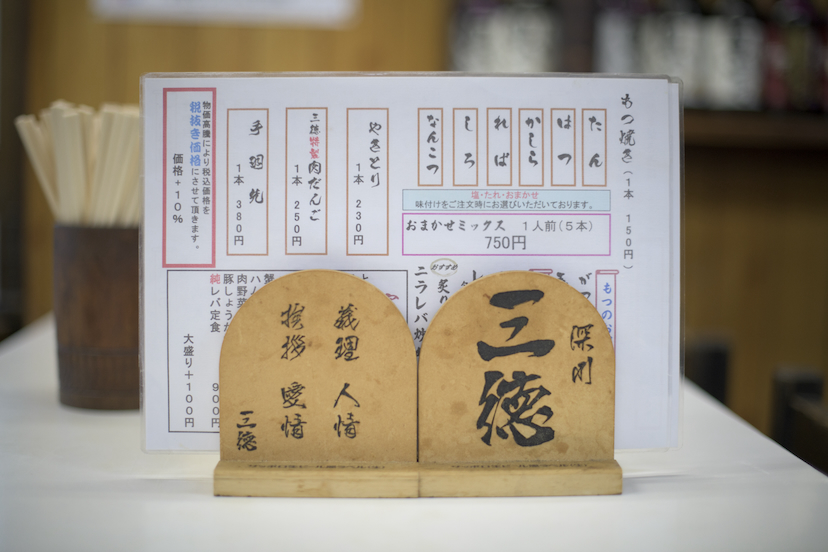 もつ焼き（1本　150円）
たん
はつ
かしら
ればー
しろ
なんこつ
塩・たれ・おまかせ
味付けをご注文時にお選びいただいております。
おまかせミックス　1人前（5本）
750円
やきとり
1本　230円
三徳特製肉だんご
1本　250円
手廻純
1本　380円
物価高騰により税込価格を
税抜き価格にさせて頂きます。
価格＋10%
もつのお
おすすめ
ニラレバ炒
肉野菜
豚しょうが
純レバ定食
大盛り＋100円
深川
三徳
義理　人情
挨拶　愛情
三徳